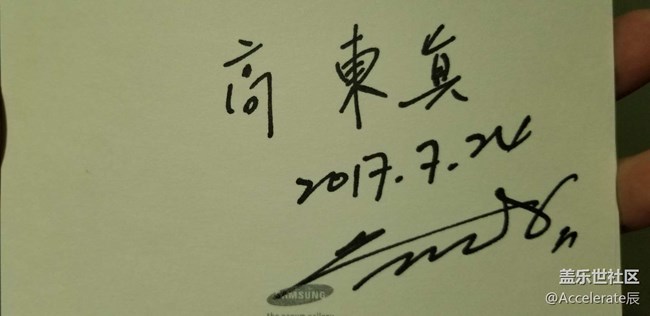 高東真
2017.7.24
SAMSUNG
盖乐世社区
@Accelerate辰